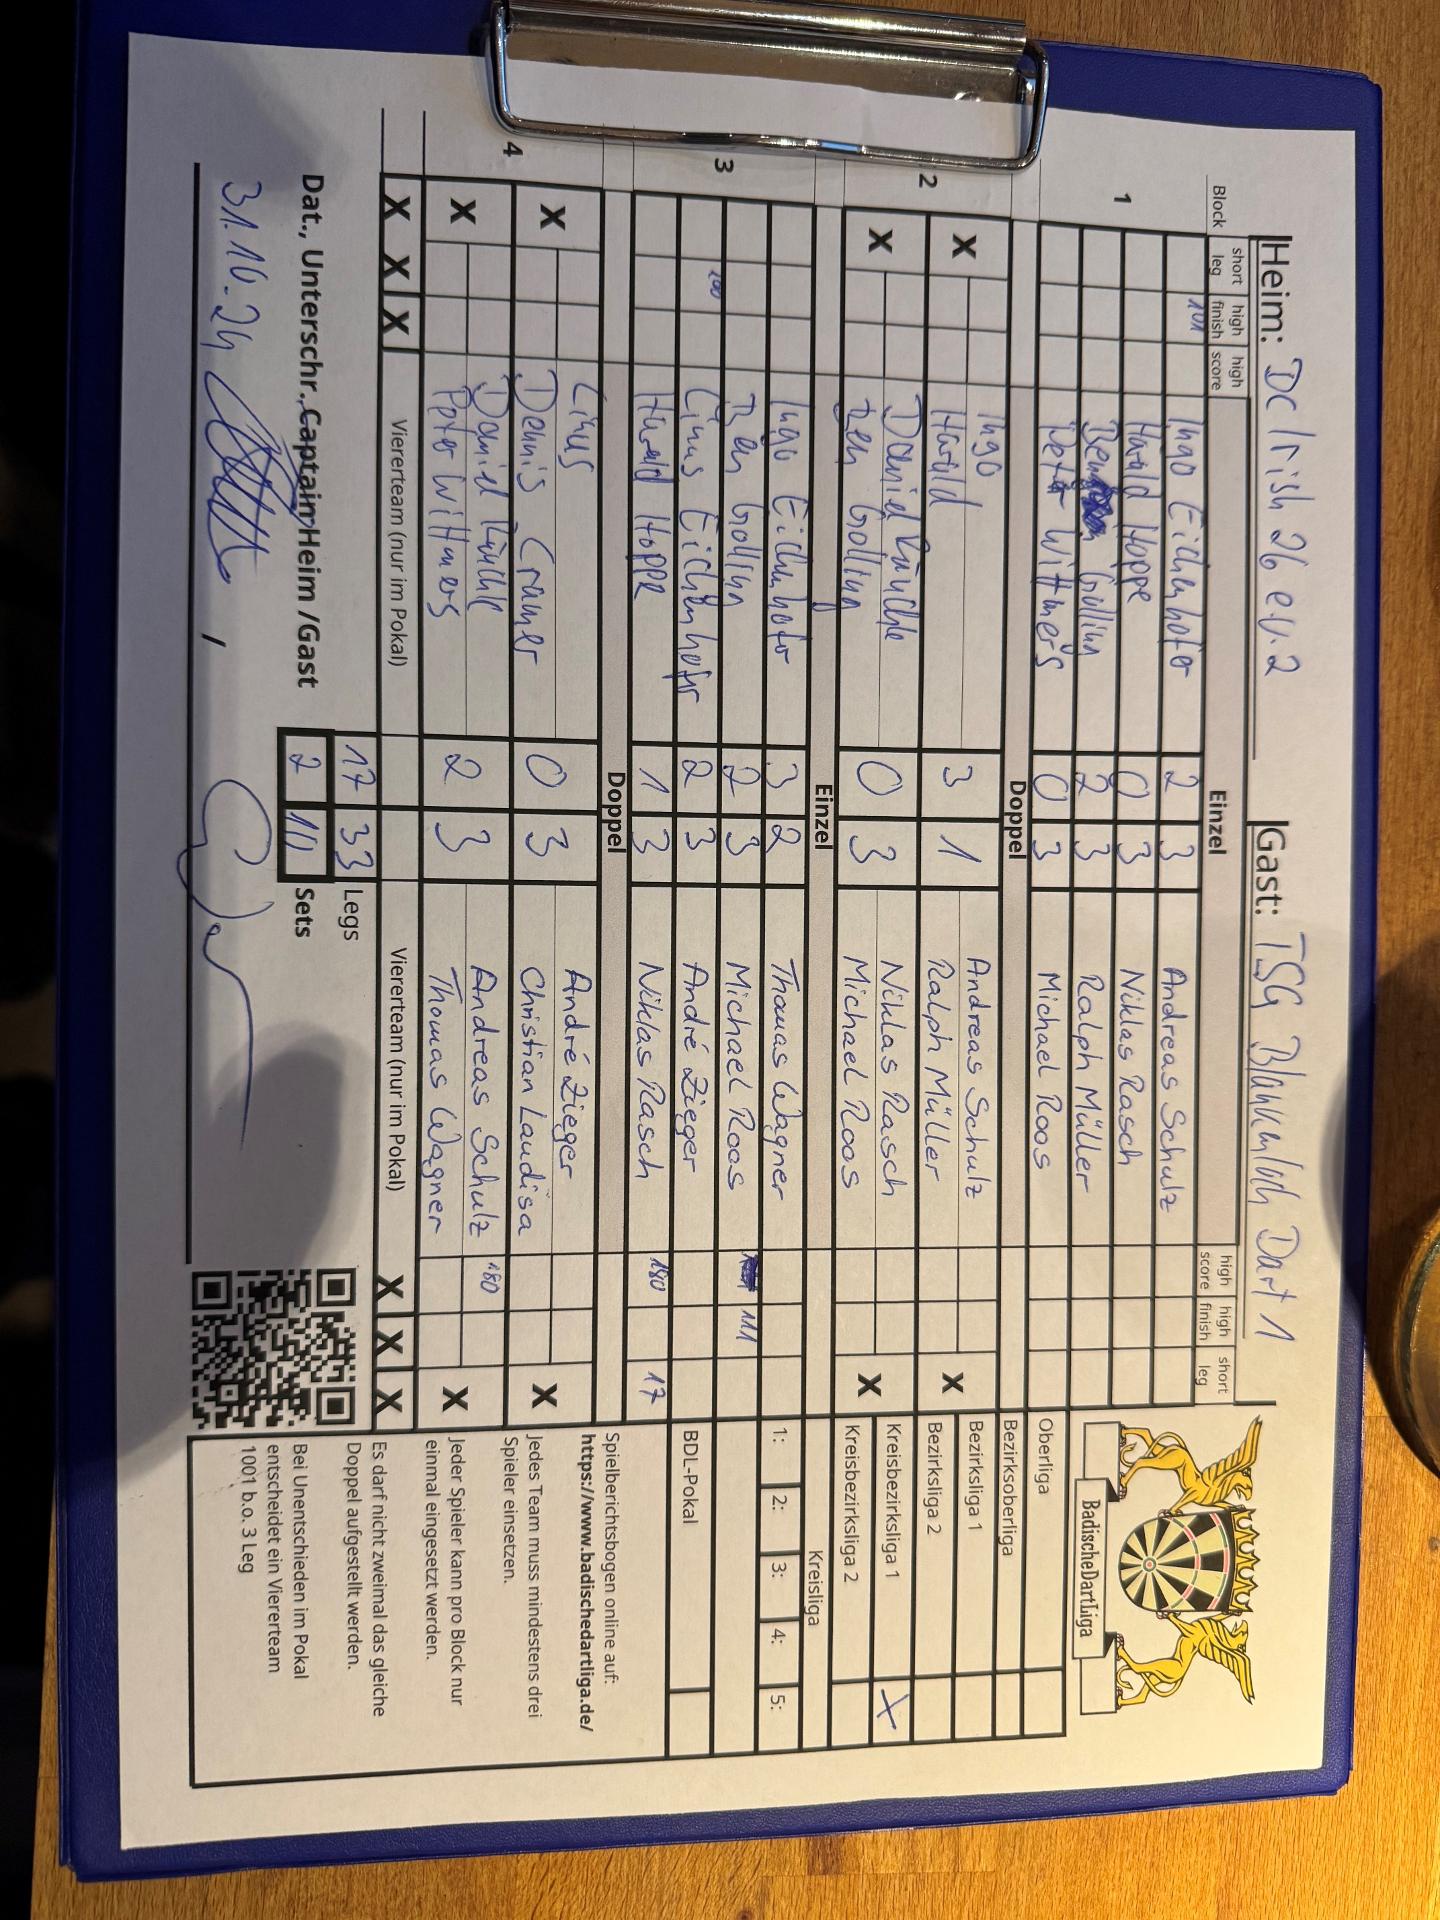 Heim: DC Irish 26 e.V. 2 Gast: TSG Blankenloch Dart 1
Block short leg high finish high score Einzel high score high finish short leg
1 101 Ingo Eichenhofer 2 3 Andreas Schulz
Harald Hoppe 0 3 Niklas Rasch
Ben Golling 2 3 Ralph Müller
Peter Wittmers 0 3 Michael Roos
Doppel
2 X Ingo 3 1 Andreas Schulz X
Harald Ralph Müller
X Daniel 0 3 Niklas Rasch X
Ben Golling Michael Roos
Einzel
3 Ingo Eichenhofer 3 2 Thomas Wagner
Ben Golling 2 3 Michael Roos 111
100 Linus Eichenhofer 2 3 André Zieger
Harald Hoppe 1 3 Niklas Rasch 180 17
Doppel
4 X Linus 0 3 André Zieger X
Dennis Cramer Christian Laudisa
X Daniel 2 3 Andreas Schulz 180 X
Peter Wittmers Thomas Wagner
X X X Viererteam (nur im Pokal) Viererteam (nur im Pokal) X X X
17 33 Legs
Dat., Unterschr. Captain Heim /Gast 2 10 Sets
31.10.24 ,
BadischeDartLiga
Oberliga
Bezirksoberliga
Bezirksliga 1
Bezirksliga 2
Kreisbezirksliga 1 X
Kreisbezirksliga 2
Kreisliga
1: 2: 3: 4: 5:
BDL-Pokal
Spielberichtsbogen online auf:
https://www.badischedartliga.de/
Jedes Team muss mindestens drei
Spieler einsetzen.
Jeder Spieler kann pro Block nur
einmal eingesetzt werden.
Es darf nicht zweimal das gleiche
Doppel aufgestellt werden.
Bei Unentschieden im Pokal
entscheidet ein Viererteam
1001 b.o. 3 Leg